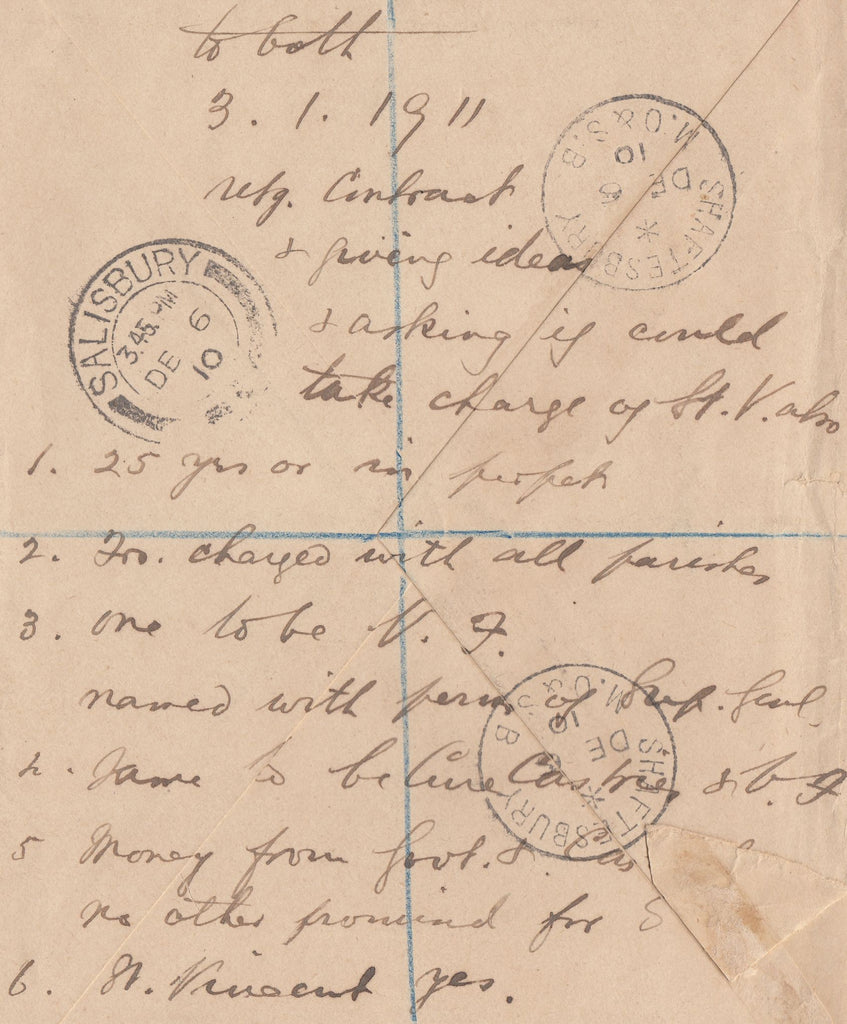 to both
3. 1. 1911
retg. Contract
& giving ideas
& asking if could
take charge of St. V. also
1. 25 yrs or in perpet
2. charged with all parishes
3. one to be V. F.
named with perm of Sup. Genl.
4. Same to be Cure Castries & V. F
5 Money from Govt.
no other promised for
6. St. Vincent yes.
SALISBURY
3.45 PM
DE 6
10
SHAFTESBURY
M.O. & S.B
DE 6
10
SHAFTESBURY
M.O. & S.B
DE
10